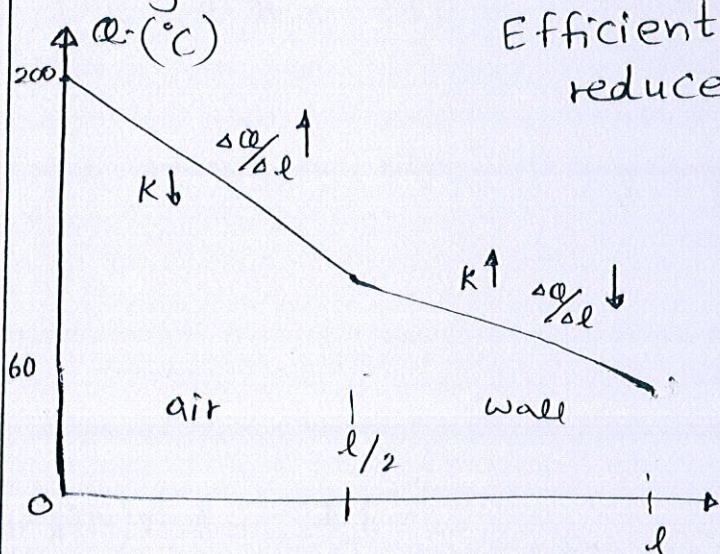 Q (°C)
Efficient
reduce
200
ΔQ/Δl ↑
K ↓
K ↑
ΔQ/Δl ↓
60
air
wall
l/2
0
l